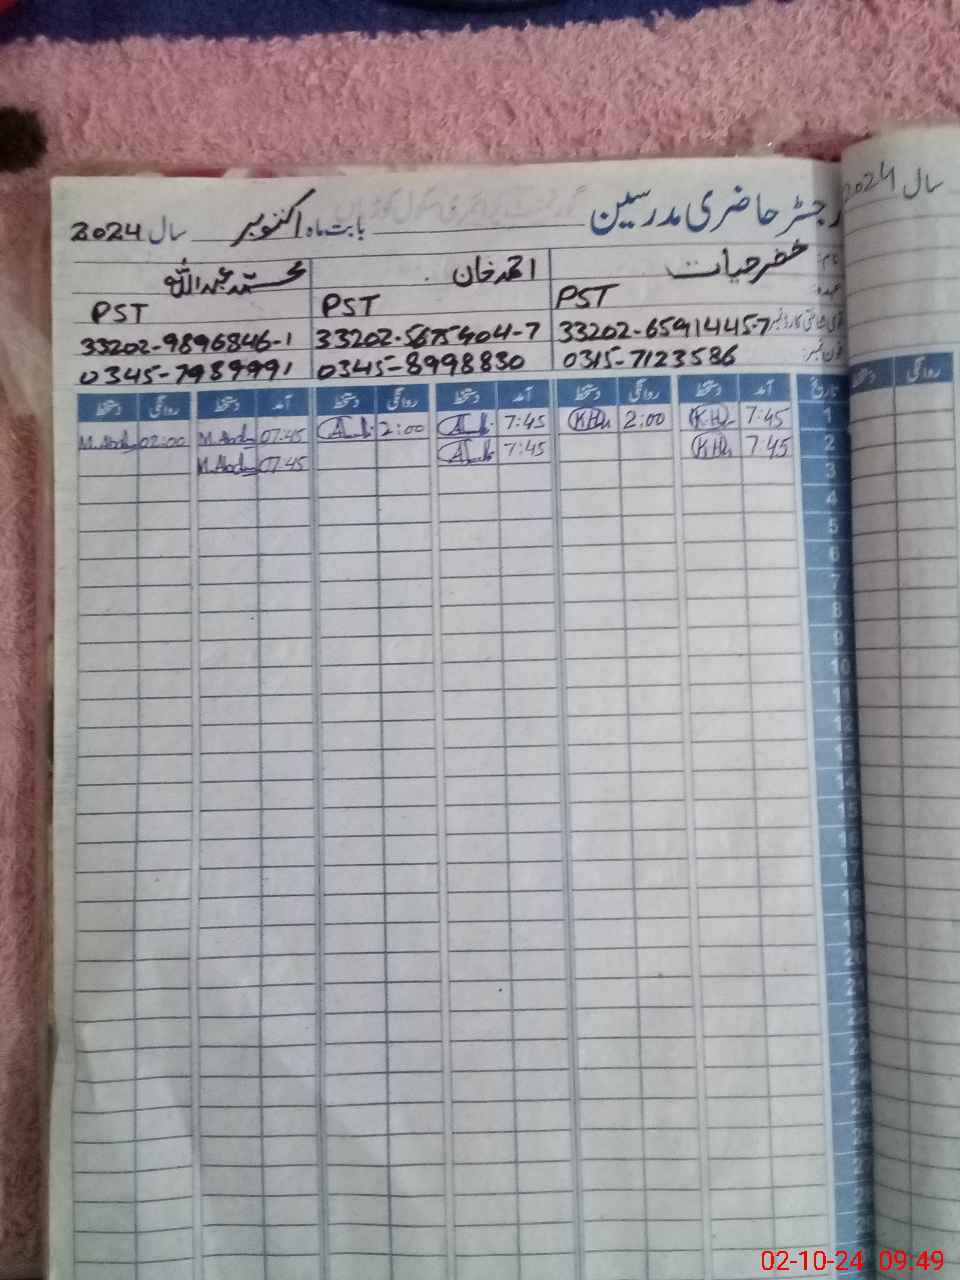 رجسٹر حاضری مدرسین بابت ماہ اکتوبر سال 2024
نام: خضر حیات احمد خان محمد عبداللہ
عہدہ: PST PST PST
33202-6591445-7 33202-5675404-7 33202-9896846-1
فون نمبر: 0315-7123586 0345-8998830 0345-7989991
تاریخ آمد دستخط روانگی دستخط آمد دستخط روانگی دستخط آمد دستخط روانگی دستخط
1 7:45 K.H 2:00 K.H 7:45 2:00 07:45 M.Abd 02:00 M.Abd
2 7:45 K.H 7:45 07:45 M.Abd
3
4
5
6
7
8
9
10
11
12
13
14
15
16
17
18
19
20
21
22
23
24
26
27
سال 2024
روانگی دستخط
02-10-24 09:49